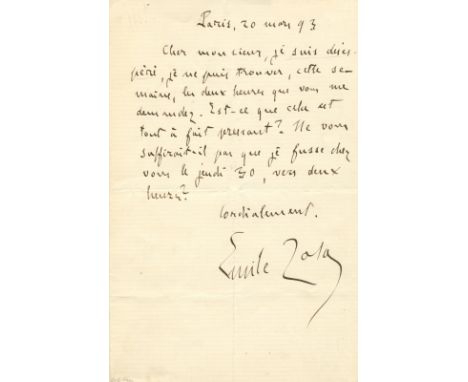 Paris, 20 mars 93
Cher monsieur, je suis déses-
péré, je ne puis trouver, cette se-
maine, les deux heures que vous me
demandez. Est-ce que cela est
tout à fait pressant? Ne vous
suffirait-il pas que je fusse chez
vous le jeudi 30, vers deux
heures?
Cordialement.
Emile Zola